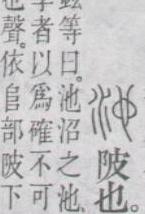 池陂也。
鉉等曰。池沼之池、
學者以爲確不可
也聲。依𨸏部陂下